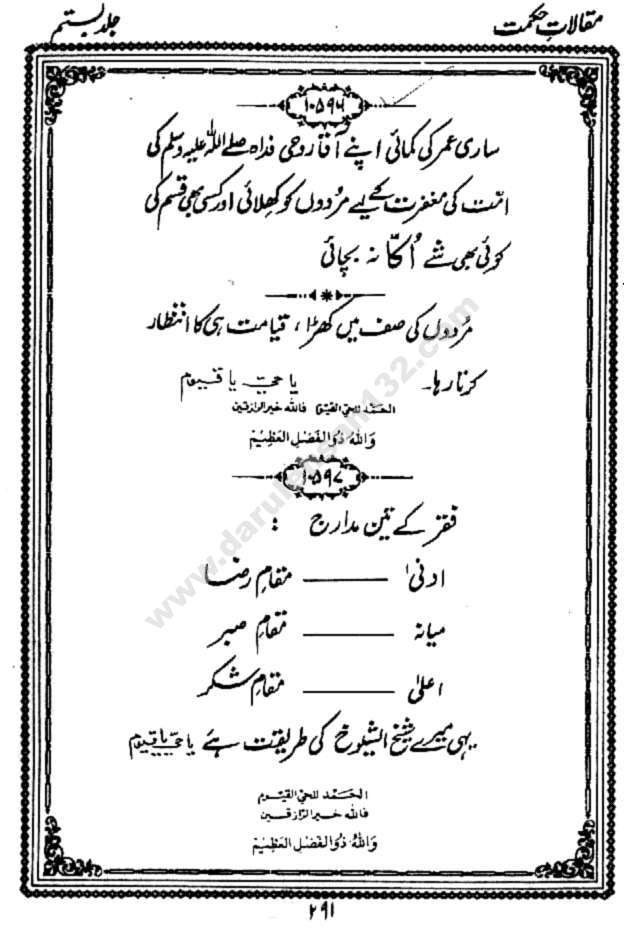 مقالاتِ حکمت
جلد بستم
۱۰۵۹۶
ساری عمر کی کمائی اپنے آقا روحی فداہ صلے اللہ علیہ وسلم کی
امّت کی مغفرت کے لیے مردوں کو کھلائی اور کسی بھی قسم کی
کوئی بھی شے اُکّا نہ بچائی
مردوں کی صف میں کھڑا، قیامت ہی کا انتظار
کرتا رہا۔ یا حیّ یا قیّوم
الحَمد للحیّ القیّوم فالله خیر الرازقین
وَاللهُ ذُو الفَضلِ العَظِیْم
۱۰۵۹۷
فقر کے تین مدارج :
ادنیٰ ——— مقامِ رضا
میانہ ——— مقامِ صبر
اعلیٰ ——— مقامِ شکر
یہی میرے شیخ الشیوخ کی طریقت ہے یا حیّ یا قیّوم
الحَمد للحیّ القیّوم
فالله خیر الرّازقین
وَاللهُ ذُو الفَضلِ العَظِیْم
۲۹۱